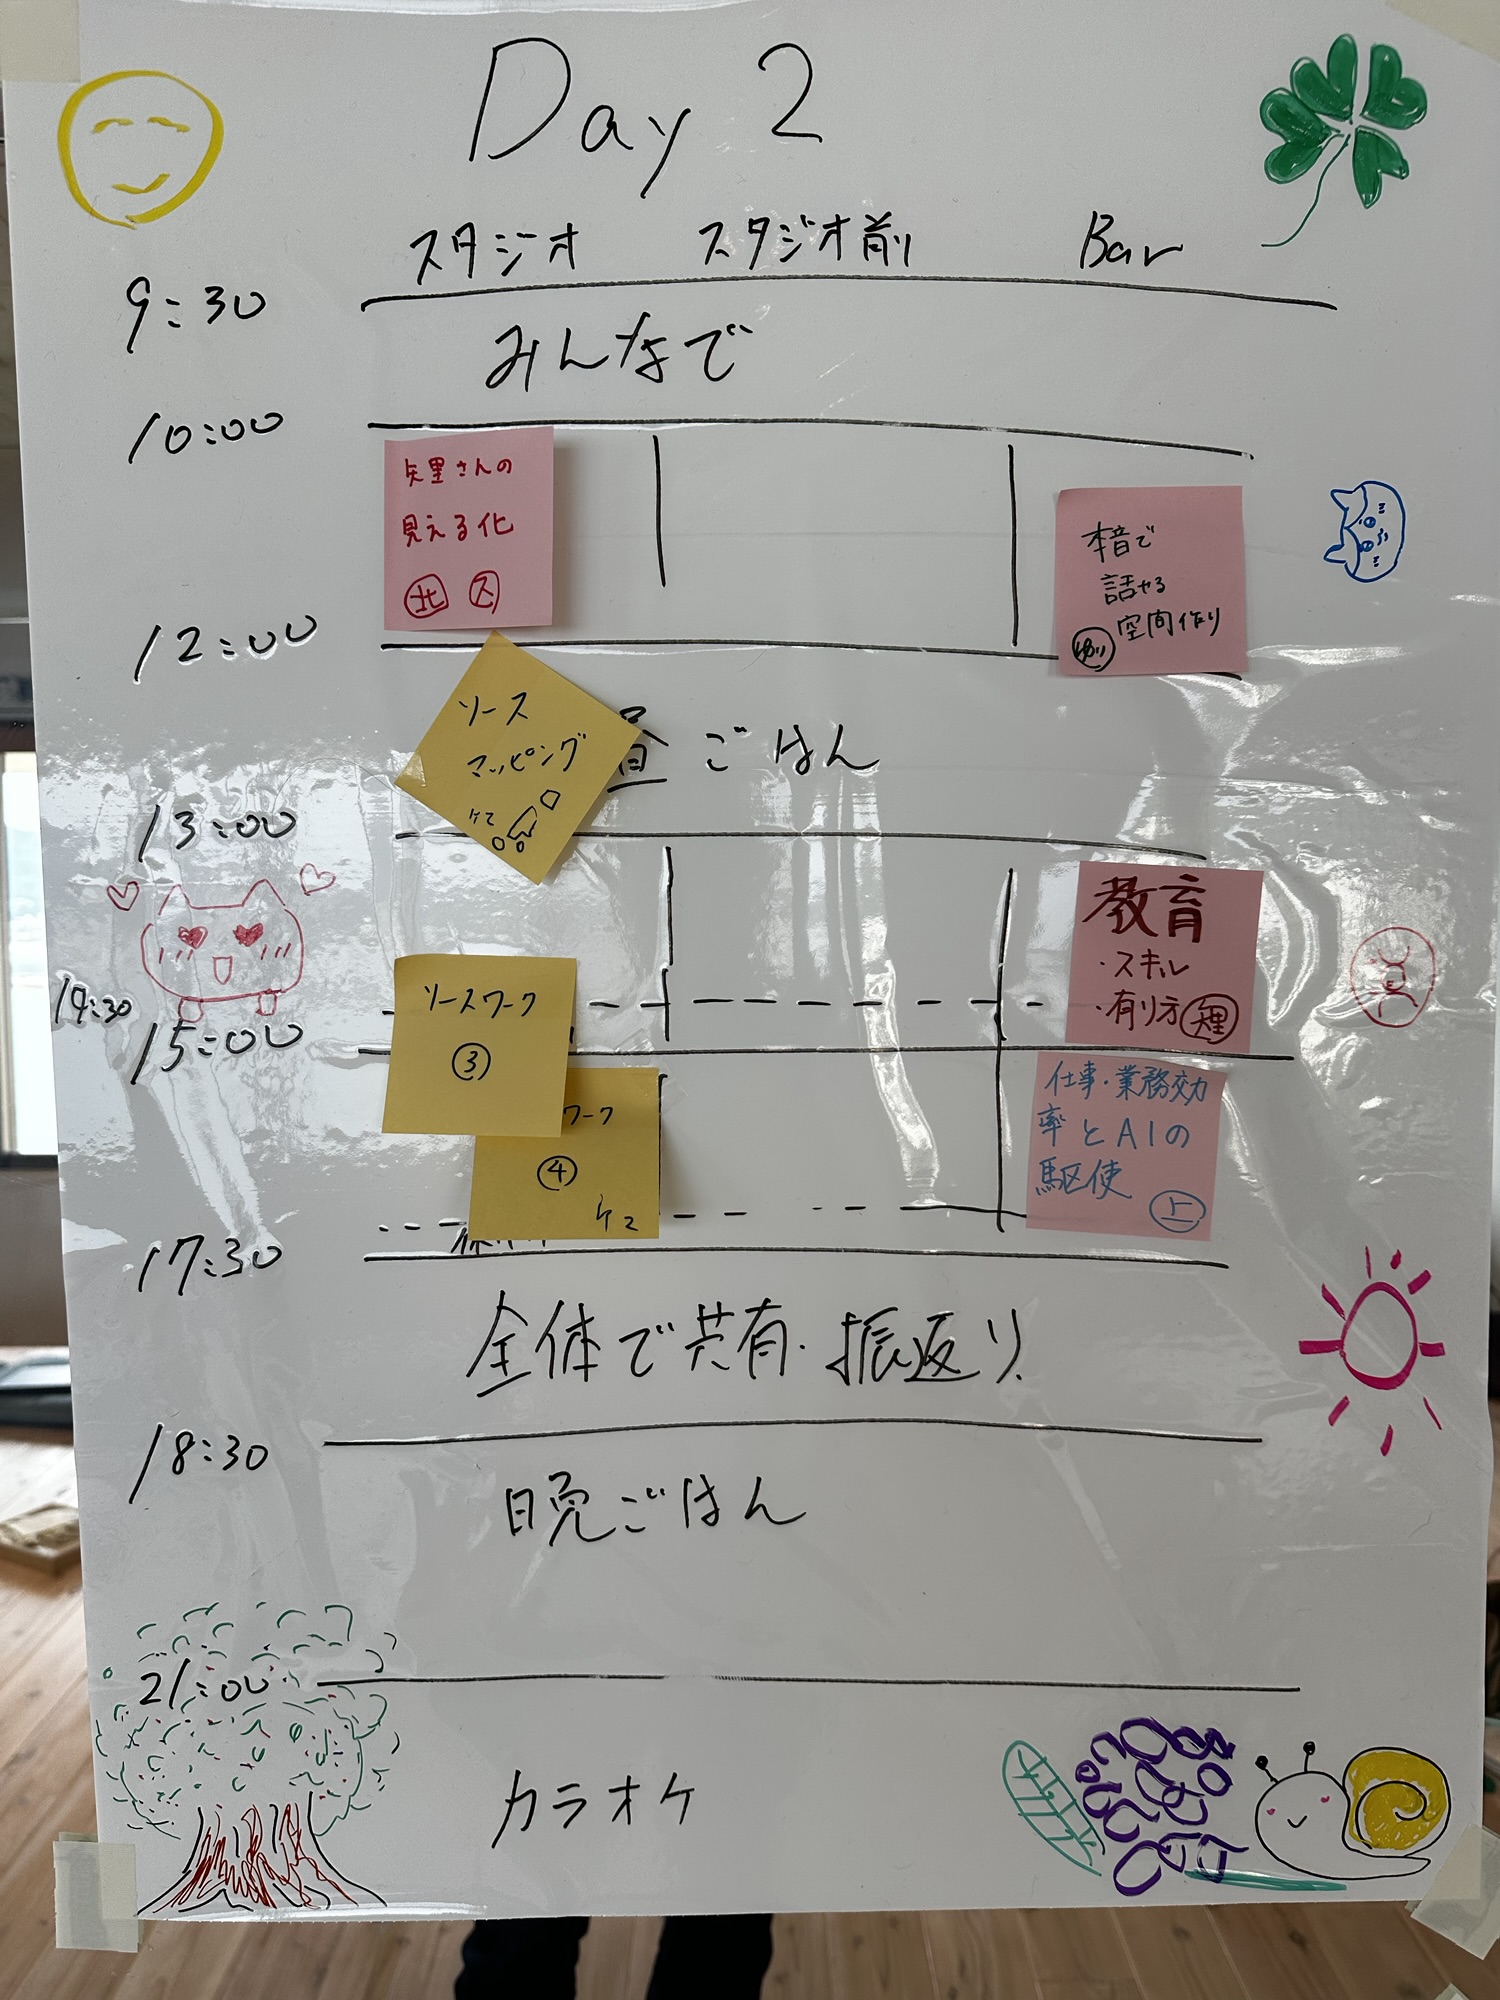 Day 2
スタジオ スタジオ前 Bar
9:30
みんなで
10:00
矢里さんの
見える化
北 ス
本音で
話せる
空間作り
ゆり
12:00
ソース
マッピング
昼ごはん
13:00
教育
・スキル
・有り方
14:30
15:00
ソースワーク
③
ワーク
④
仕事・業務効
率とAIの
駆使
上
17:30
全体で共有・振返り
18:30
晩ごはん
21:00
カラオケ